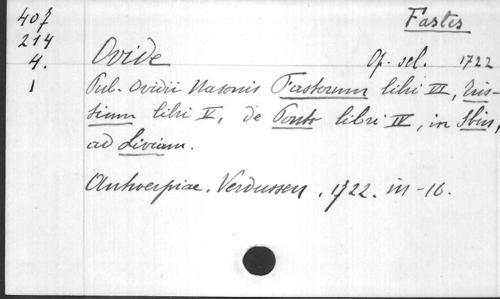 407 Fastes
214
4. Ovide Op. sel. 1722
1 Pub. Ovidii Nasonis Fastorum libri VI, Tris-
tium libri V, de Ponto libri IV, in Ibin,
ad Liviam.
Antverpiae, Verdussen, 1722. in-16.